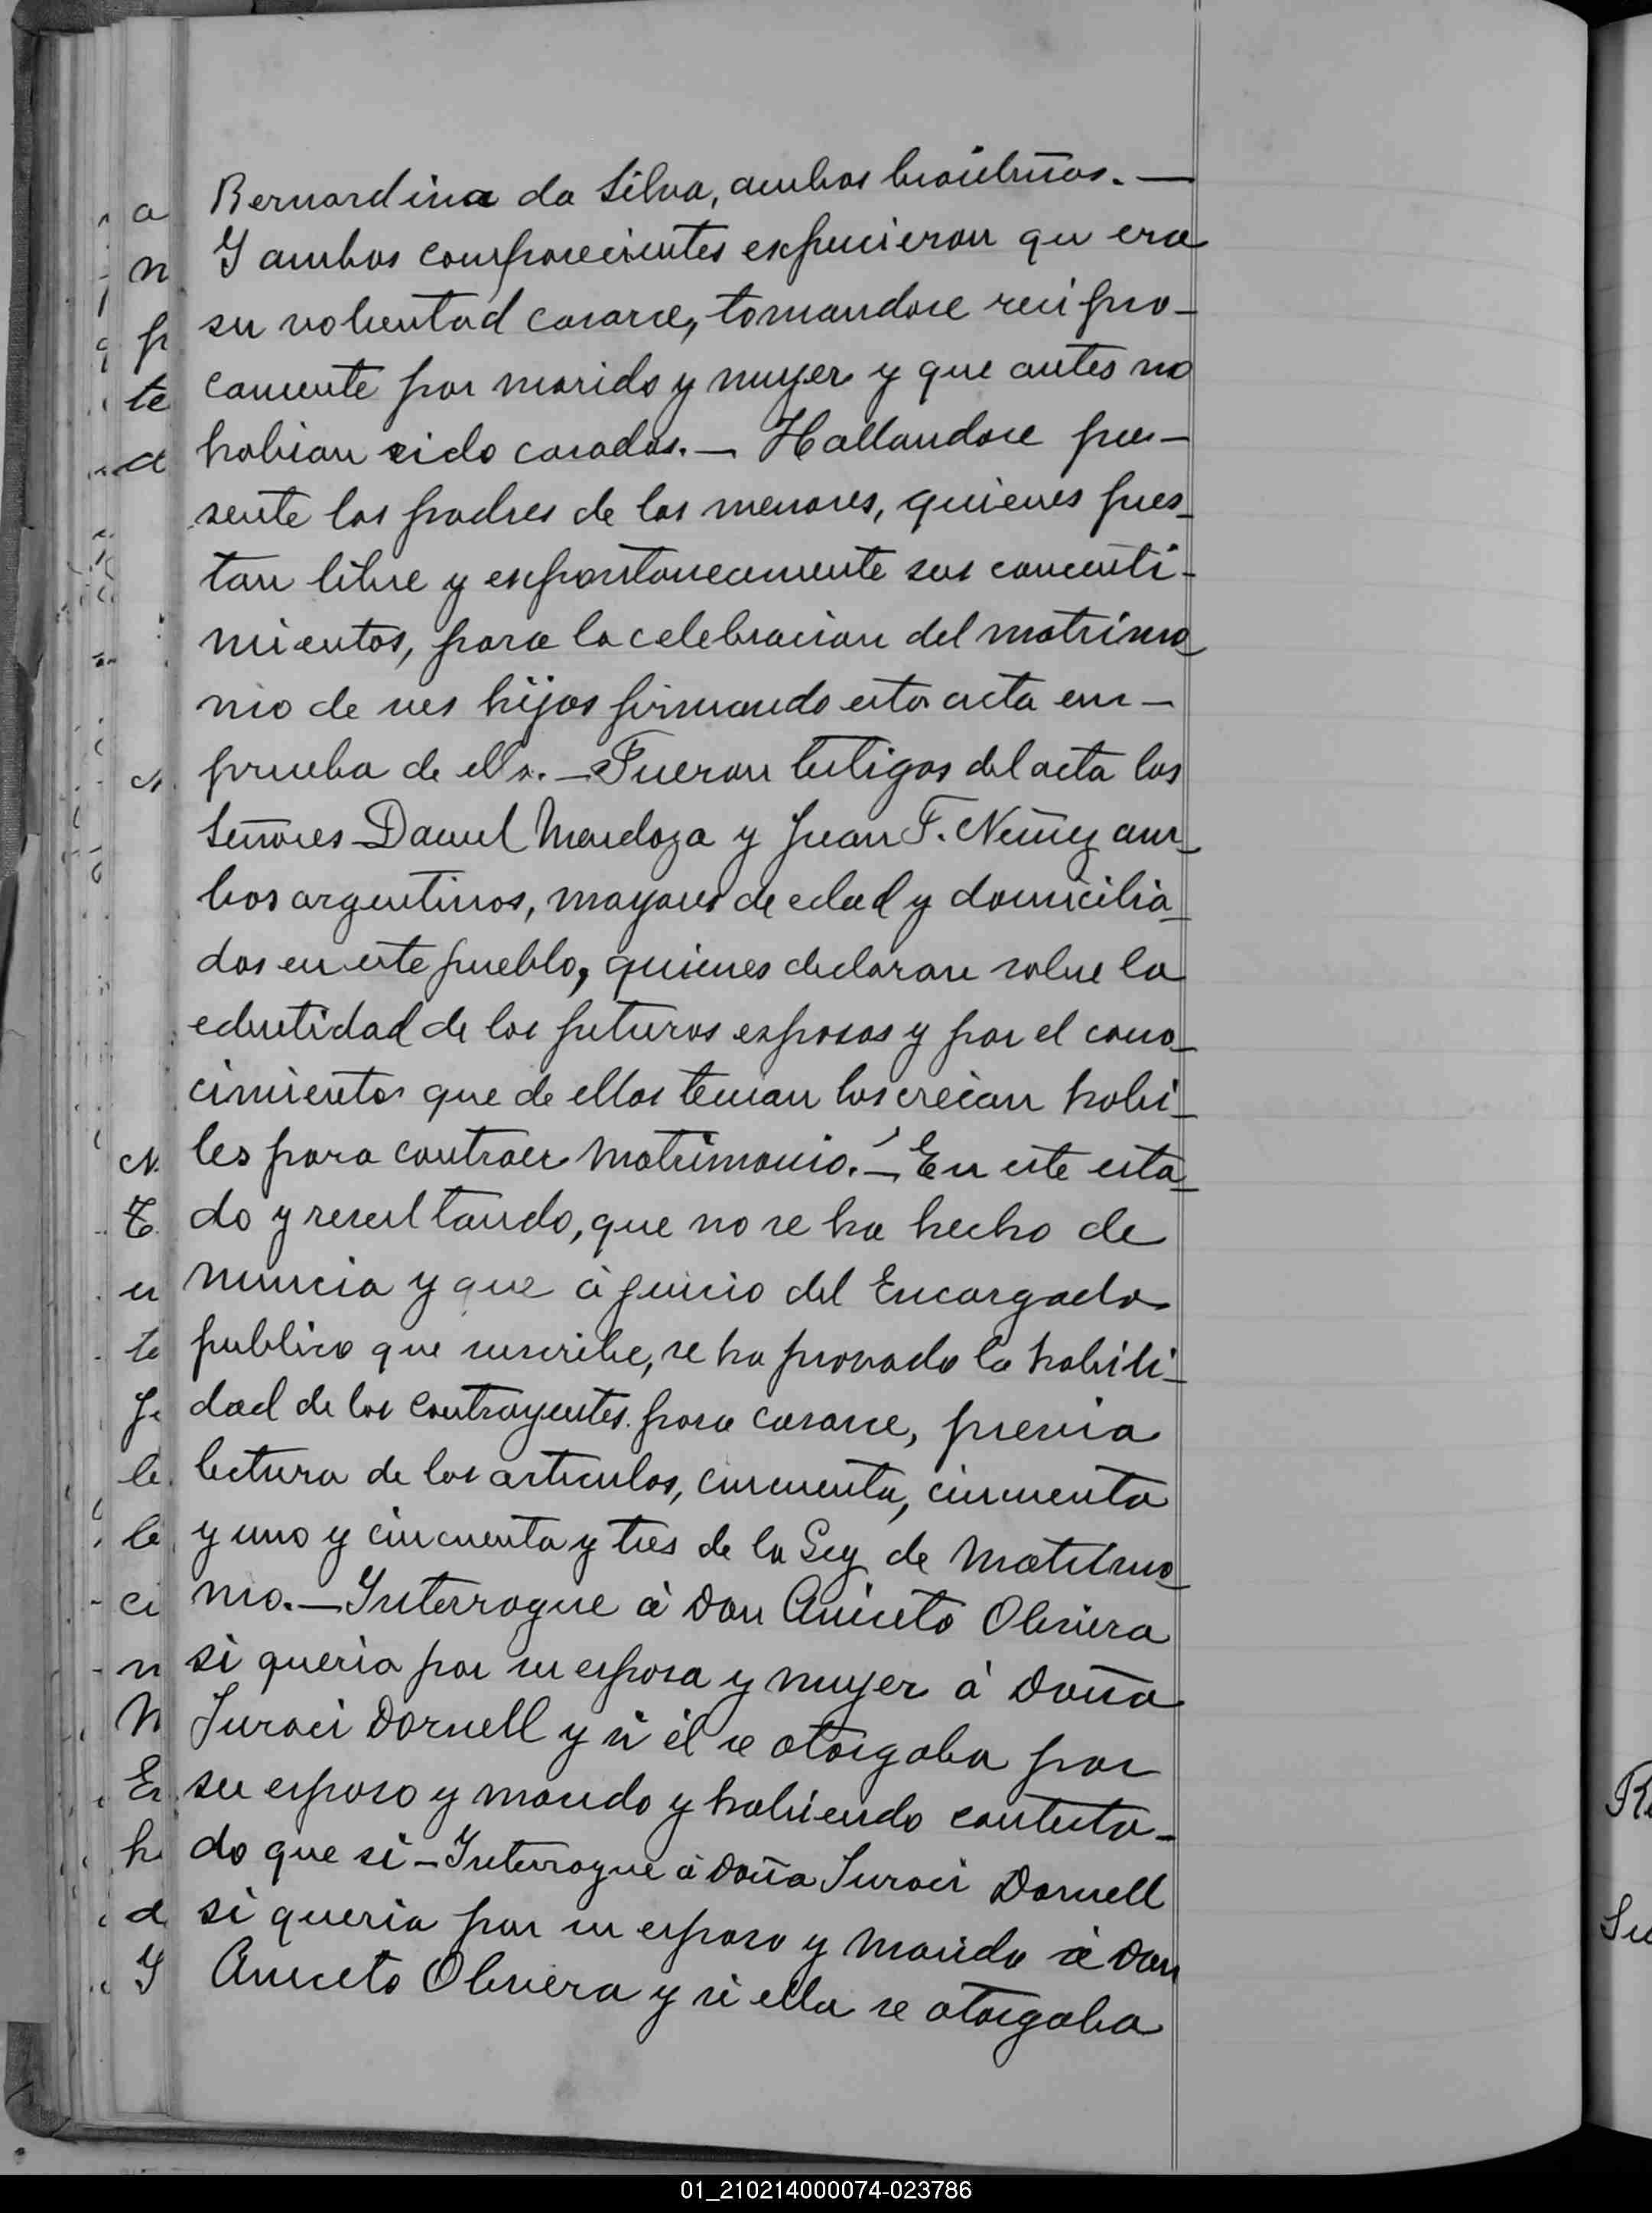 Bernardina da Silva, ambos brasileños. —
Y ambos comparecientes expucieron que era
su voluntad casarse, tomandose recipro-
camente por marido y muger y que antes no
habian sido casados. — Hallandose pre-
sente los padres de los menores, quienes pres-
tan libre y espontaneamente sus consenti-
mientos, para la celebracion del matrimo-
nio de sus hijos firmando esta acta en -
prueba de ello. — Fueron testigos del acta los
Señores Daniel Mendoza y Juan F. Nuñez am-
bos argentinos, mayores de edad y domicilia-
dos en este pueblo, quienes declaran sobre la
edentidad de los futuros esposos y por el cono-
cimiento que de ellos tenian los creian habi-
les para contraer matrimonio. — En este esta-
do y resultando, que no se ha hecho de
nuncia y que á juicio del Encargado
publico que suscribe, se ha provado la habili-
dad de los contrayentes para casarse, previa
lectura de los articulos, cincuenta, cincuenta
y uno y cincuenta y tres de la Ley de Matrimo-
nio. — Interrogue á Don Aniceto Oliviera
si queria por su esposa y muger á Doña
Juraci Dornell y si él se otorgaba por
su esposo y marido y habiendo contesta-
do que si — Interrogue á Doña Juraci Dornell
si queria por su esposo y marido á Don
Aniceto Oliviera y si ella se otorgaba
01_210214000074-023786